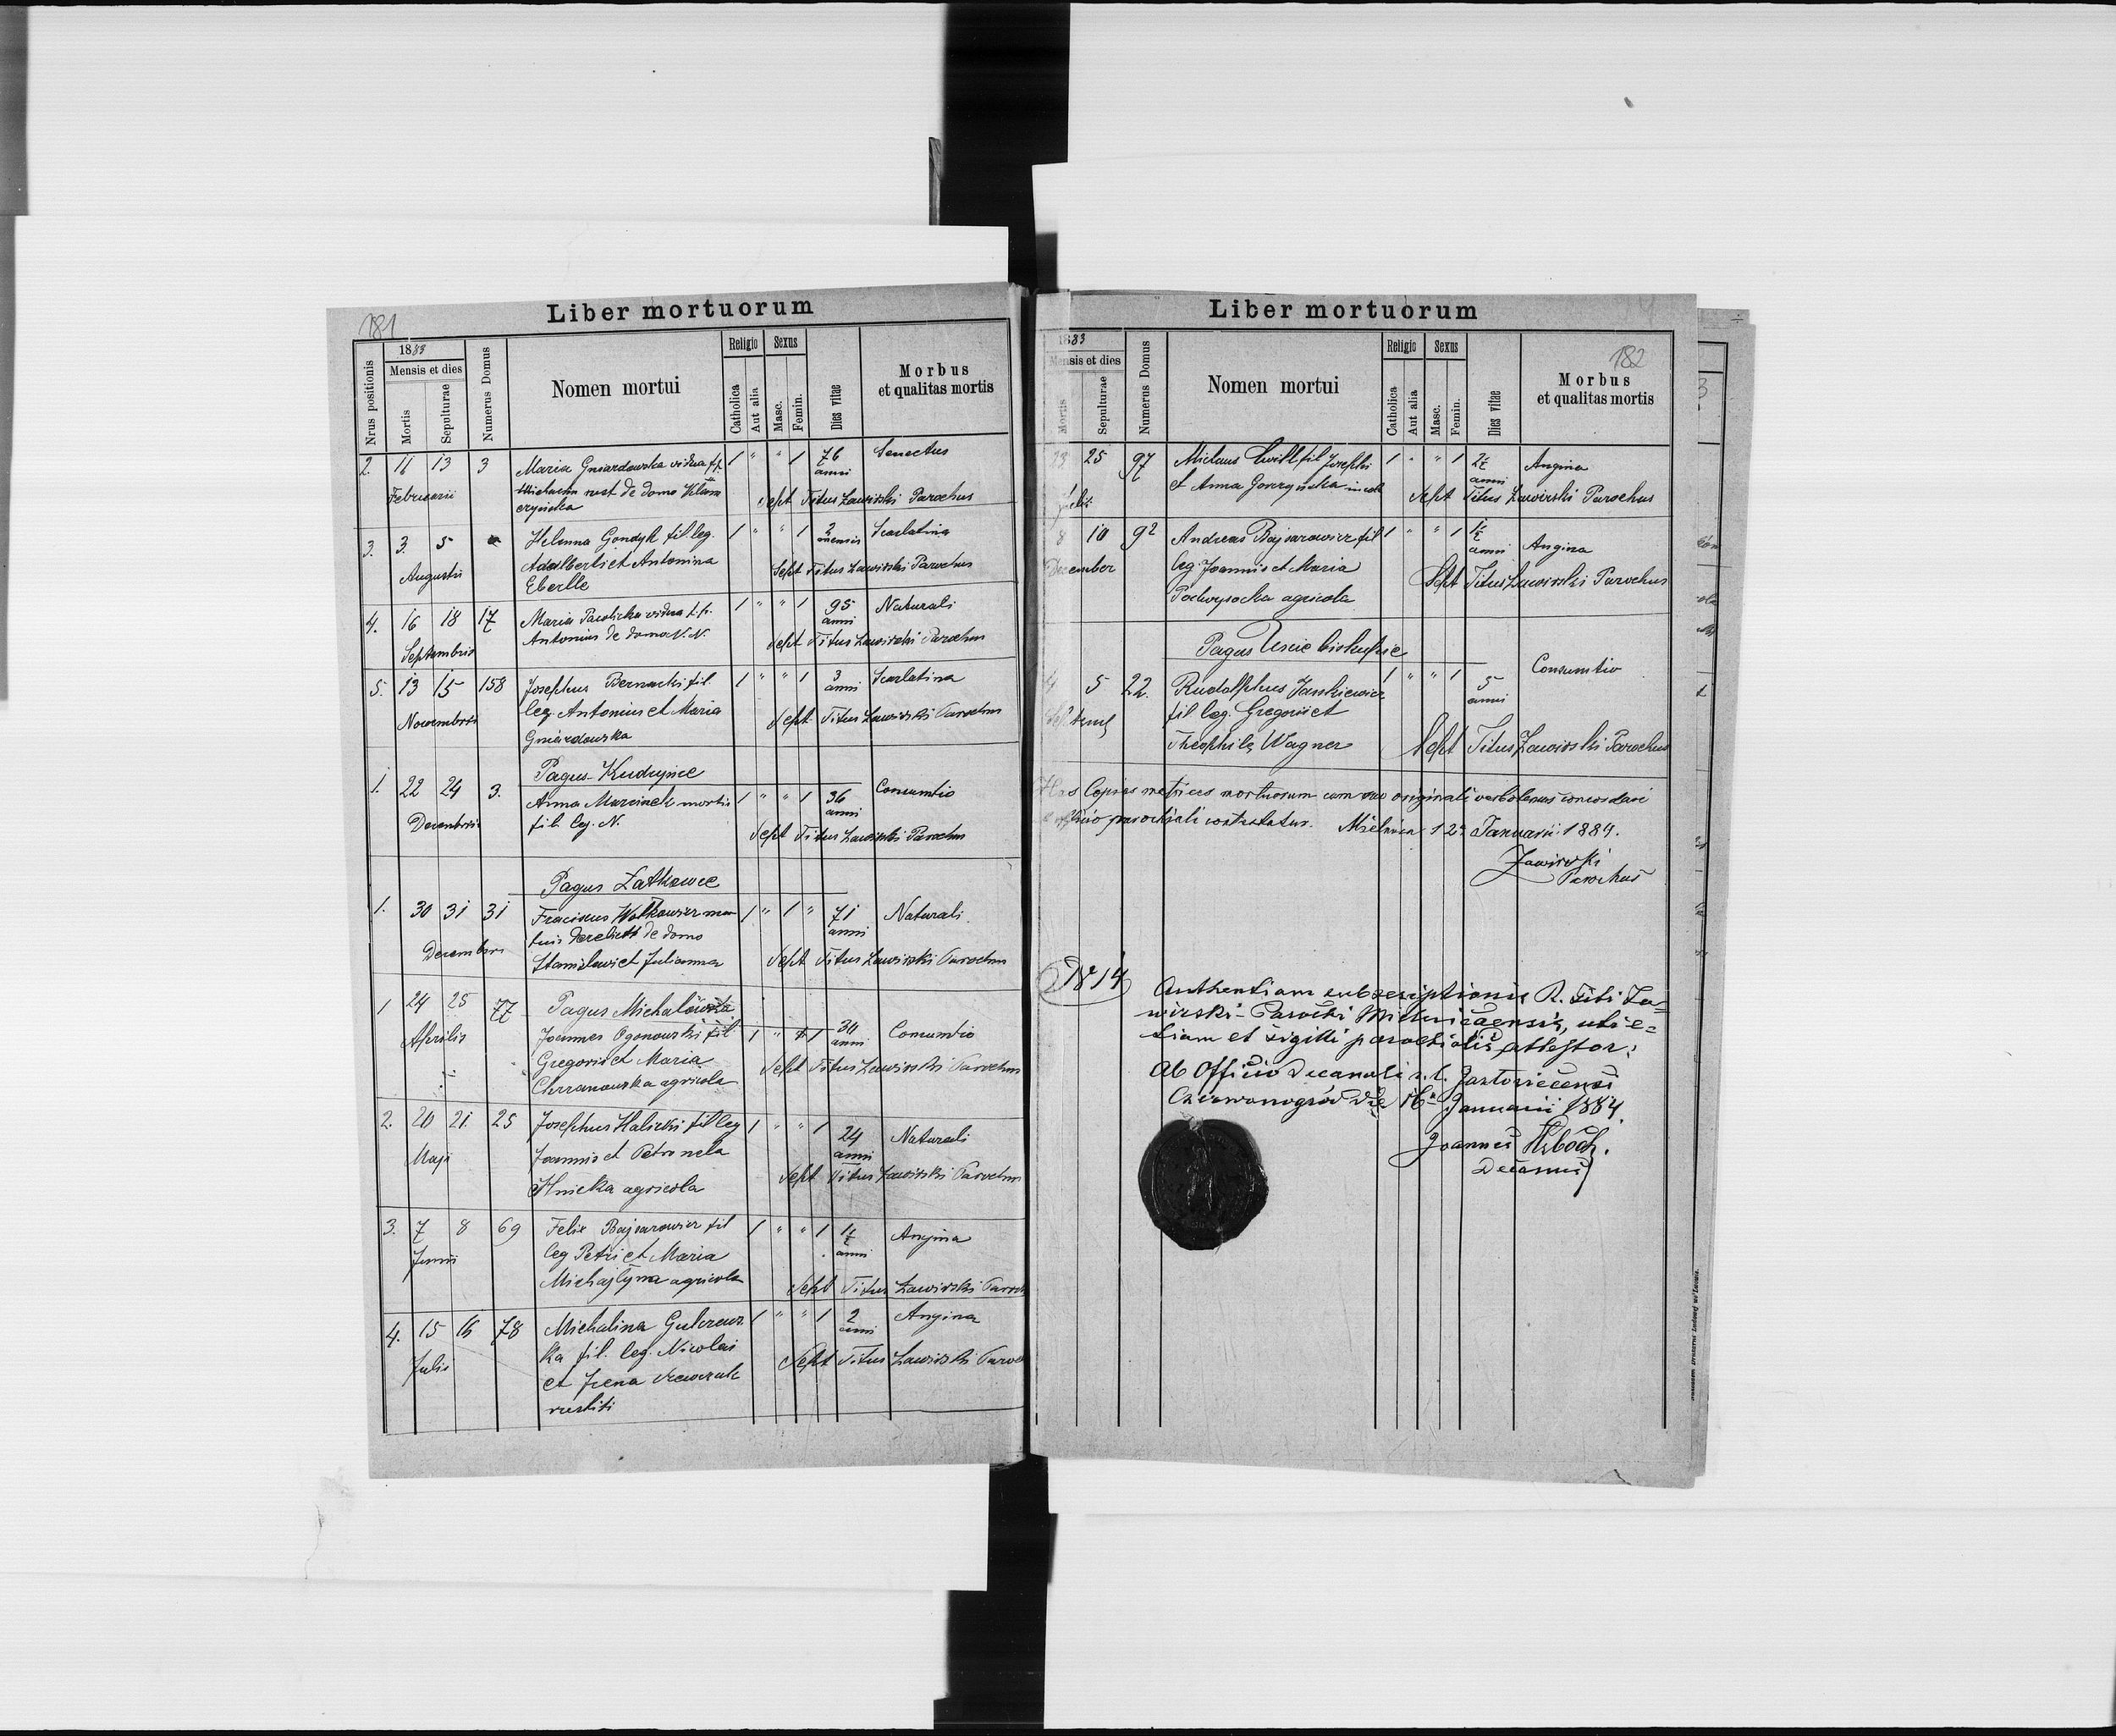 Liber mortuorum
181
1883
Mensis et dies
Nrus positionis
Mortis
Sepulturae
Numerus Domus
Nomen mortui
Religio
Catholica
Aut alia
Sexus
Masc.
Femin.
Dies vitae
Morbus
et qualitas mortis
2. 11 13 3 Maria Gniazdowska vidua p. 1 " " 1 76 anni Senectus
Februarii rust de domo
Sept Titus Zawirski Parochus
3. 3. 5 Helenna Gondyk fil. leg. 1 " " 1 2 mensis Scarlatina
Augusti Adalberti et Antonina
Eberlle Sept Titus Zawirski Parochus
4. 16 18 17 Maria vidua p. 1 " " 1 95 anni Naturali
Septembris Antonius de domo N. N. Sept Titus Zawirski Parochus
5. 13 15 158 Josephus Bernacki fil. 1 " " 1 3 anni Scarlatina
Novembris leg. Antonius et Maria Sept Titus Zawirski Parochus
Gniazdowska
Pagus Kudryńce
1. 22 24 3. Anna Marcinek mortis 1 " " 1 36 anni Consumtio
Decembris fil. leg. N. Sept Titus Zawirski Parochus
Pagus Zatkowce
1. 30 31 31 Fraciscus Wołkowicz 1 " 1 " 71 anni Naturali
de domo
Decembris Stanislawi et Julianna Sept Titus Zawirski Parochus
1 24 25 77 Pagus Michałówka
Aprilis Joannes Ogonowski fil 1 " 1 30 anni Consumtio
Gregoris et Maria Sept Titus Zawirski Parochus
Chrzanowska agricola
2. 20 21. 25 Josephus Halicki fil leg 1 " " 1 24 anni Naturali
Maji Joannis et Petronela Sept Titus Zawirski Parochus
Hnicka agricola
3. 7 8 69 Felix Bajsarowicz fil 1 " " 1 1/2 anni Angina
Junii leg Petri et Maria
Michajlyna agricola Sept Titus Zawirski Paroch
4. 15 16 78 Michalina 1 " " 1 2 anni Angina
Julis ka fil. leg. Nicolai Sept Titus Zawirski Paroc
et Irena
rustiti
Liber mortuorum
182
1883
Mensis et dies
Mortis
Sepulturae
Numerus Domus
Nomen mortui
Religio
Catholica
Aut alia
Sexus
Masc.
Femin.
Dies vitae
Morbus
et qualitas mortis
23 25 97 fil Josephi 1 " " 1 2 1/2 anni Angina
et Anna Sept Titus Zawirski Parochus
8 10 92 Andreas Bajsarowicz fil 1 " " 1 1/2 anni Angina
December leg Joannis et Maria Sept Titus Zawirski Parochus
Podwysocka agricola
Pagus Uscie biskupie
4 5 22. Rudolphus Jankiewicz 1 " " 1 5 anni Consumtio
fil leg. Gregorii et
Theophila Wagner Sept Titus Zawirski Parochus
Has Copias metrices mortuorum cum suo originali verbotenus concordari
officio parochiali contestatur. Mielnica 12a Januarii 1884.
Zawirski
Parochus
No 14
Authentiam subscriptionis R. Titi Za-
wirski Parochi Mielnicaensis, uti e-
tiam et sigilli parochialis attestor:
Ab Officio Decanali r. l. Jazłoviecensi
Czerwonogród die 16a Januarii 1884
Joannes
Decanus